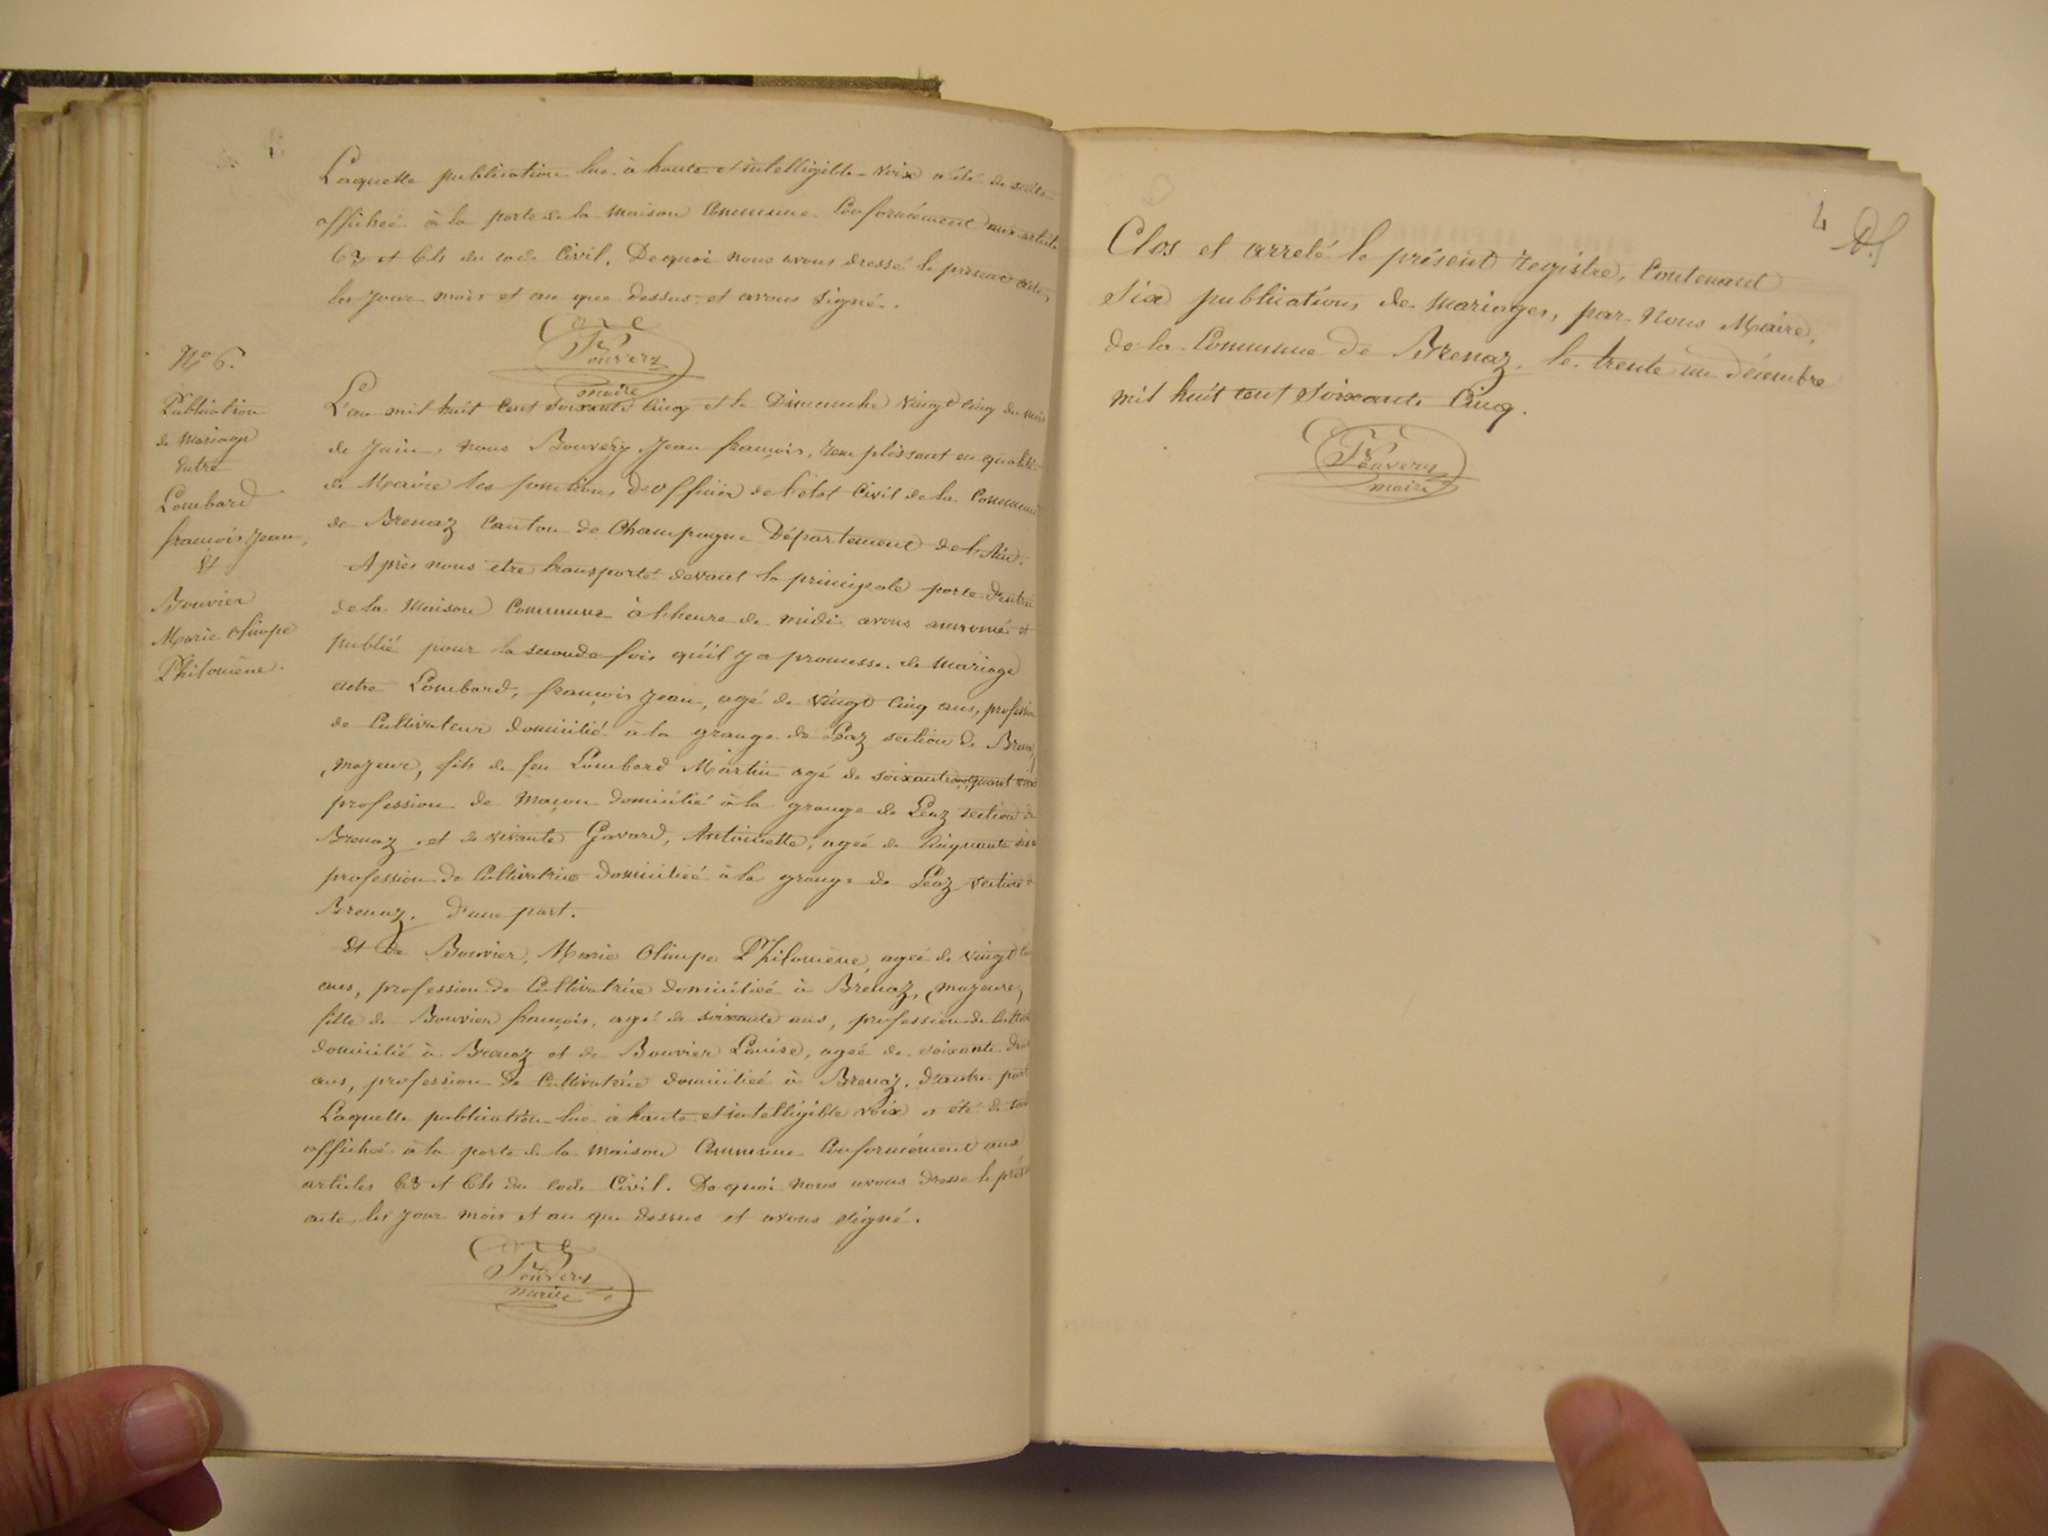 Laquelle publication lue à haute et intelligible voix a été de suite
affichée à la porte de la maison Commune Conformément aux articles
63 et 64 du code Civil. De quoi nous avons dressé le présent acte,
les jour mois et an que dessus et avons signé.
Bouvery
maire
No 6.
Publication
de Mariage
Entre
Lombard
françois Jean,
Et
Bouvier
Marie Olimpe
Philomène.
L'an mil huit cent soixante cinq et le Dimanche vingt cinq du mois
de Juin, nous Bouvery Jean françois, remplissant en qualité
de Maire les fonctions d'officier de l'état Civil de la Commune
de Brenaz Canton de Champagne Département de l'Ain.
Après nous être transporté devant la principale porte d'entrée
de la Maison Commune à l'heure de midi avons annoncé et
publié pour la seconde fois qu'il y a promesse de mariage
entre Lombard, françois Jean, agé de vingt cinq ans, profession
de Cultivateur domicilié à la grange de Léaz section de Brenaz
majeur, fils de feu Lombard Martin agé de soixante
profession de Maçon domicilié à la grange de Léaz section de
Brenaz, et de vivante Gavard, Antoinette, agée de Cinquante
profession de Cultivatrice domiciliée à la grange de Léaz section de
Brenaz. D'une part.
Et de Bouvier, Marie Olimpe Philomène, agée de vingt
ans, profession de Cultivatrice domiciliée à Brenaz, majeure,
fille de Bouvier françois, agé de soixante ans, profession de
domicilié à Brenaz et de Bouvier Louise, agée de soixante
ans, profession de Cultivatrice domiciliée à Brenaz. D'autre part
Laquelle publication lue à haute et intelligible voix a été de
affichée à la porte de la maison Commune Conformément aux
articles 63 et 64 du code Civil. De quoi nous avons dressé le
acte, les jour mois et an que dessus et avons signé.
Bouvery
maire
4
Clos et arreté le présent registre, Contenant
six publications de mariages, par Nous Maire,
de la Commune de Brenaz, le trente un décembre
mil huit cent soixante Cinq.
Bouvery
maire